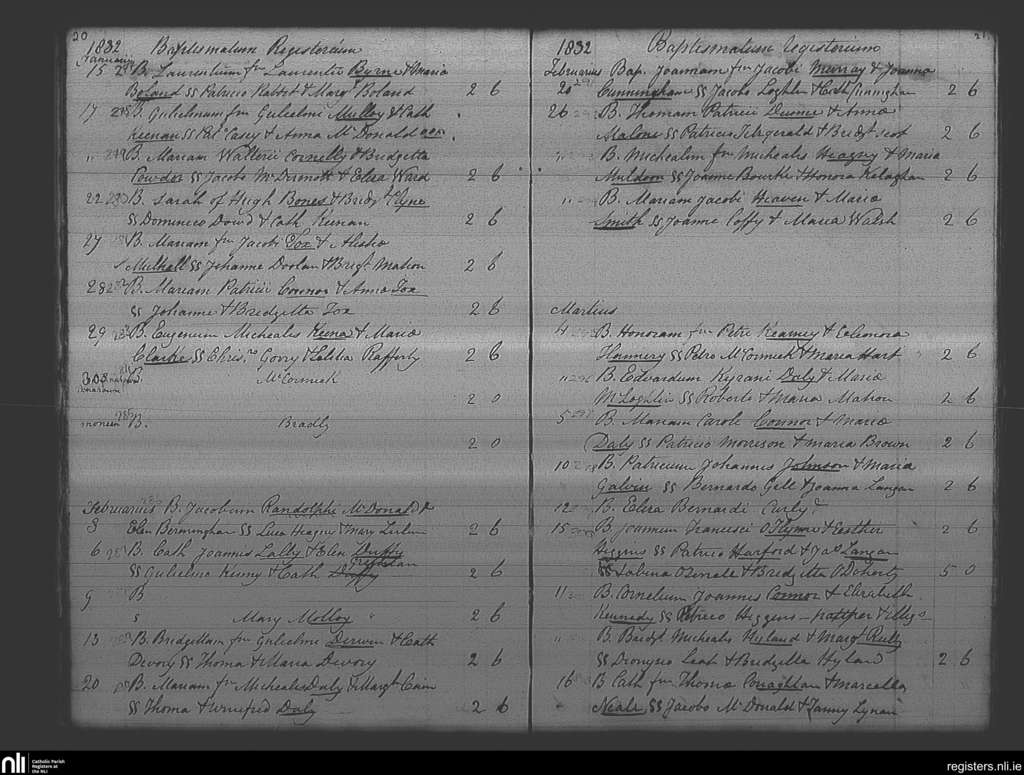 20
1832 Baptismatum Registorium
Januarius
15 B. Laurentium fm Laurentii Byrne & Maria
Boland SS Patricio Rabbit & Margt Boland 2 6
17 B. Gulielmum fm Gulielmi Mulloy & Cath
Keenan SS Pat Casey & Anna McDonald
" B. Mariam Walterii Connelly & Bridgetta
Cowdor SS Jacobo McDermott & Eliza Ward 2 6
22 B. Sarah of Hugh Bones & Bridgt Glyne
SS Dominico Dowd & Cath Keenan 2 6
27 B. Mariam fm Jacobi Fox &
Mulhall SS Johanne Doolan & Brigt Mahon 2 6
28 B. Mariam Patricii Connor & Anna Fox
SS Johanne & Bridgetta Fox 2 6
29 B. Eugenium Michealis Keena & Maria
Clarke SS Chrisr Gorry & Lelitia Rafferty 2 6
B. McCormick
2 0
B. Bradly
2 0
Februarius B. Jacobum Randolphi McDonald &
3 Elen Bermingham SS Luca Heagny & Mary 2 6
6 B. Cath Joannis Lally & Elen Duffy
SS Gulielmo Kenny & Cath Duffy 2 6
9 B
s Mary Molloy " 2 6
13 B. Bridgettam fm Gulielmi Derwin & Cath
Devory SS Thoma & Maria Devory 2 6
20 B. Mariam fm Michealis Daly & Margt Cain
SS Thoma & Winifred Daly 2 6
21
1832 Baptismatum Registorium
Februarius Bap. Joannam fm Jacobi Murray & Joanna
20 Cunningham SS Jacobo Loghlin & Cath Cuningham 2 6
26 B. Thomam Patricii Dunne & Anna
Malone SS Patricio Fitzgerald & Bridgt 2 6
" B. Michealim fm Michealis Heagny & Maria
Muldoon SS Joanne Bourke & Honora Kelaghan 2 6
" B. Mariam Jacobi Heaven & Maria
Smith SS Joanne Coffy & Maria Walsh 2 6
Martius
4 B. Honoram fm Petri Kearney & Elenora
Flannery SS Petro McCormick & Maria Hart 2 6
" B. Edvardum Kyrani Daly & Maria
McLoghlin SS Roberto & Maria Mahon 2 6
5 B. Mariam Caroli Connor & Maria
Daly SS Patricio Morrison & Maria Brown 2 6
10 B. Patricium Johannis Johnson & Maria
Galvin SS Bernardo Gill & Joanna Langan 2 6
12 B. Eliza Bernardi Curly &
15 B. Joannem Francisci O Flynn & Esther 2 6
Higgins SS Patricio Harford & Jas Langan
SS Sabina & Bridgetta ODoherty 5 0
11 B. Cornelium Joannis Connor & Elizabeth
Kennedy SS Patricio Higgins
" B. Bridgt Michealis Hyland & Margt Reilly
SS Dionysio Leah & Bridgetta Hyland 2 6
16 B Cath fm Thoma Conaghtan & Marcella
" Neale SS Jacobo McDonald & Fanny Lynam
nli Catholic Parish Registers at the NLI
registers.nli.ie